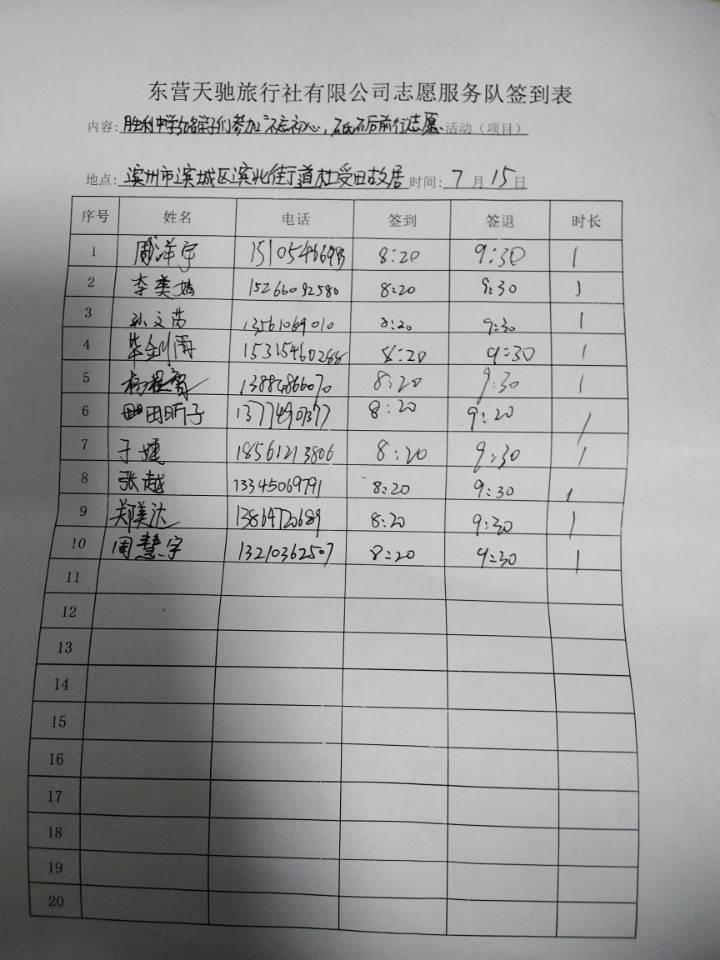 东营天驰旅行社有限公司志愿服务队签到表
内容: 胜利中学 学子们参加"不忘初心, 前行志愿 活动（项目）
地点: 滨州市滨城区滨北街道杜受田故居 时间: 7 月 15 日
序号 姓名 电话 签到 签退 时长
1 周洋宇 8:20 9:30 1
2 李美 15266092580 8:20 9:30 1
3 孙文 13561069010 8:20 9:30 1
4 毕剑 8:20 9:30 1
5 杨程 8:20 9:30 1
6 田昕子 8:20 9:20 1
7 于 18561213806 8:20 9:30 1
8 张越 13345069791 8:20 9:30 1
9 郑美达 13864720689 8:20 9:30 1
10 周慧宇 13210362507 8:20 9:30 1
11
12
13
14
15
16
17
18
19
20